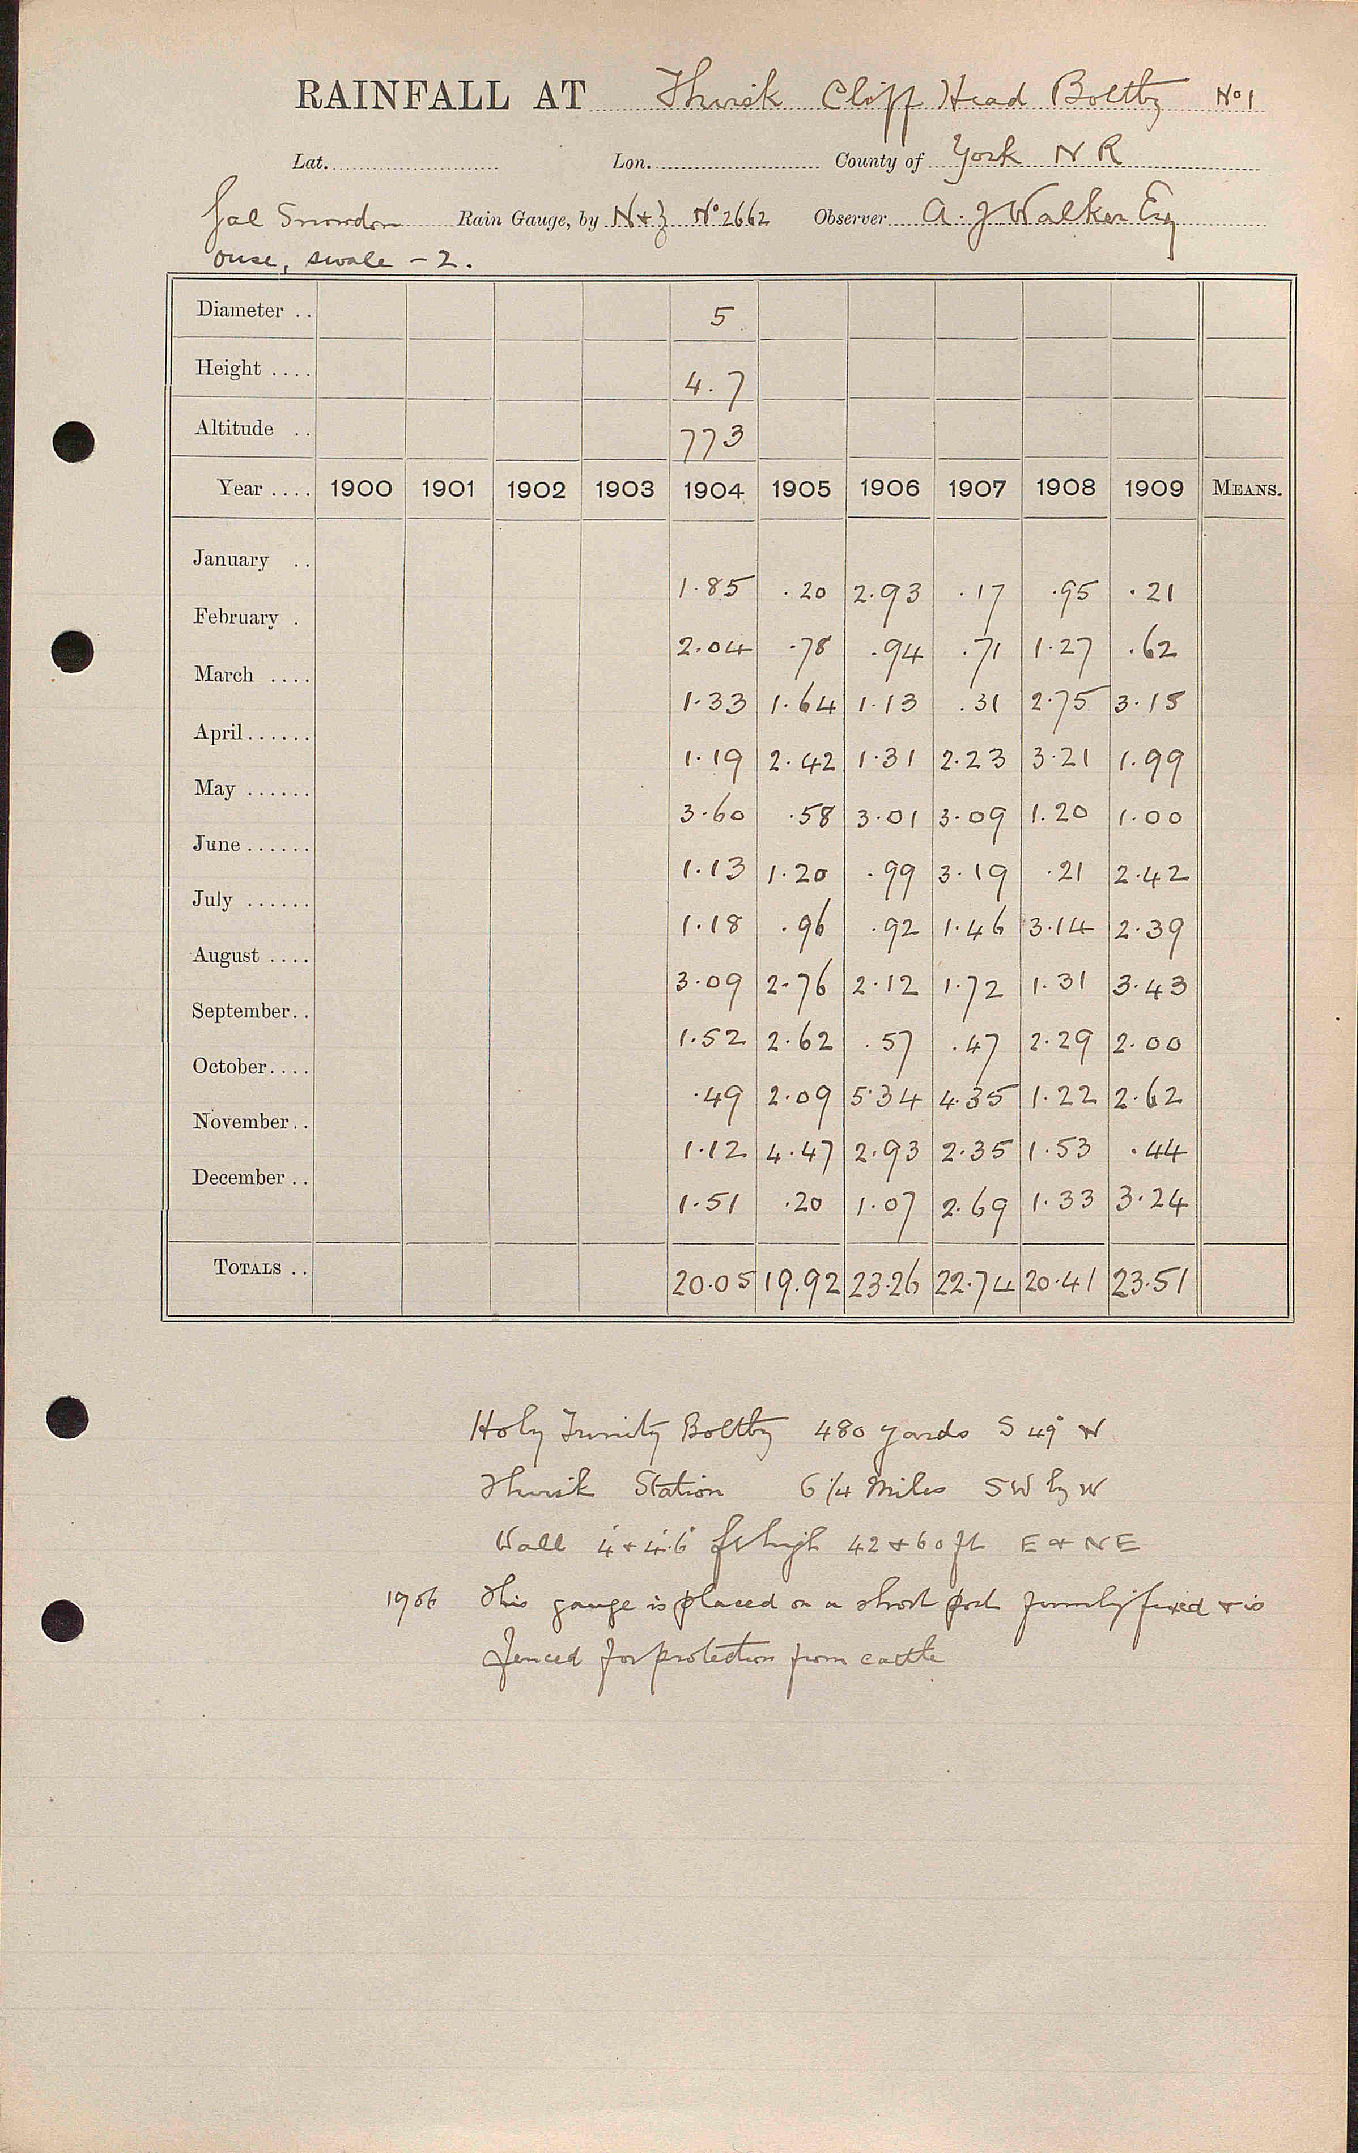 RAINFALL AT Thirsk Cliff Head Boltby No 1
Lat. Lon. County of York N R
Jal Snowdon Rain Gauge, by N & Z No 2662 Observer A. J Walker Esq
Ouse, Swale - 2.
Diameter .. 5
Height .... 4.7
Altitude .. 773
Year .... 1900 1901 1902 1903 1904 1905 1906 1907 1908 1909 MEANS.
January .. 1.85 .20 2.93 .17 .95 .21
February . 2.04 .78 .94 .71 1.27 .62
March .... 1.33 1.64 1.13 .31 2.75 3.15
April ...... 1.19 2.42 1.31 2.23 3.21 1.99
May ...... 3.60 .58 3.01 3.09 1.20 1.00
June ...... 1.13 1.20 .99 3.19 .21 2.42
July ...... 1.18 .96 .92 1.46 3.14 2.39
August .... 3.09 2.76 2.12 1.72 1.31 3.43
September .. 1.52 2.62 .57 .47 2.29 2.00
October .... .49 2.09 5.34 4.35 1.22 2.62
November .. 1.12 4.47 2.93 2.35 1.53 .44
December .. 1.51 .20 1.07 2.69 1.33 3.24
TOTALS .. 20.05 19.92 23.26 22.74 20.41 23.51
Holy Trinity Boltby 480 yards S 49° W
Thirsk Station 6 1/4 Miles SW by W
Wall 4' & 4.6' ft high 42 & 60 ft E & NE
1906 This gauge is placed on a short post firmly fixed & is
fenced for protection from cattle